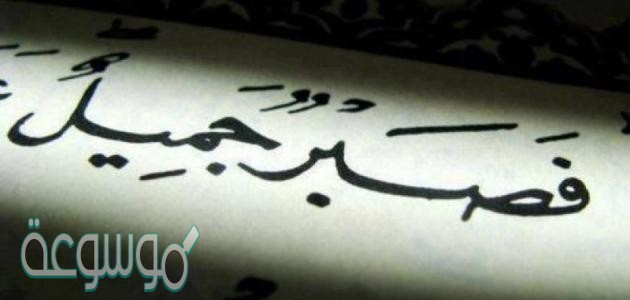 فَصَبْرٌ جَمِيلٌ
موسوعة